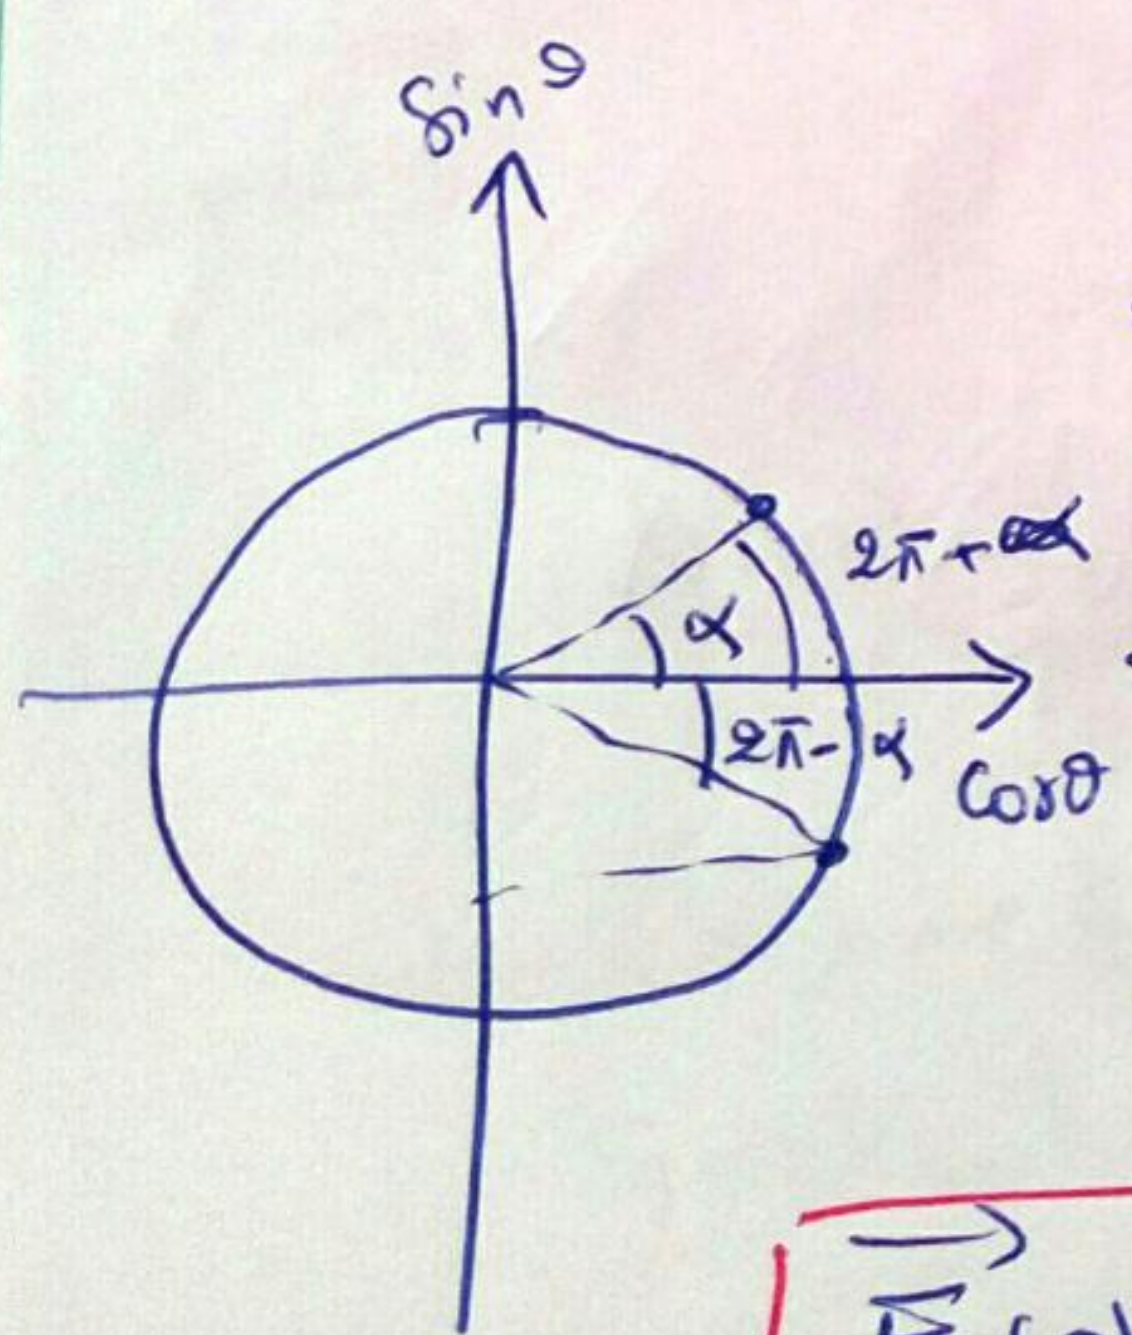 sin θ
2π + α
α
2π - α
cos θ